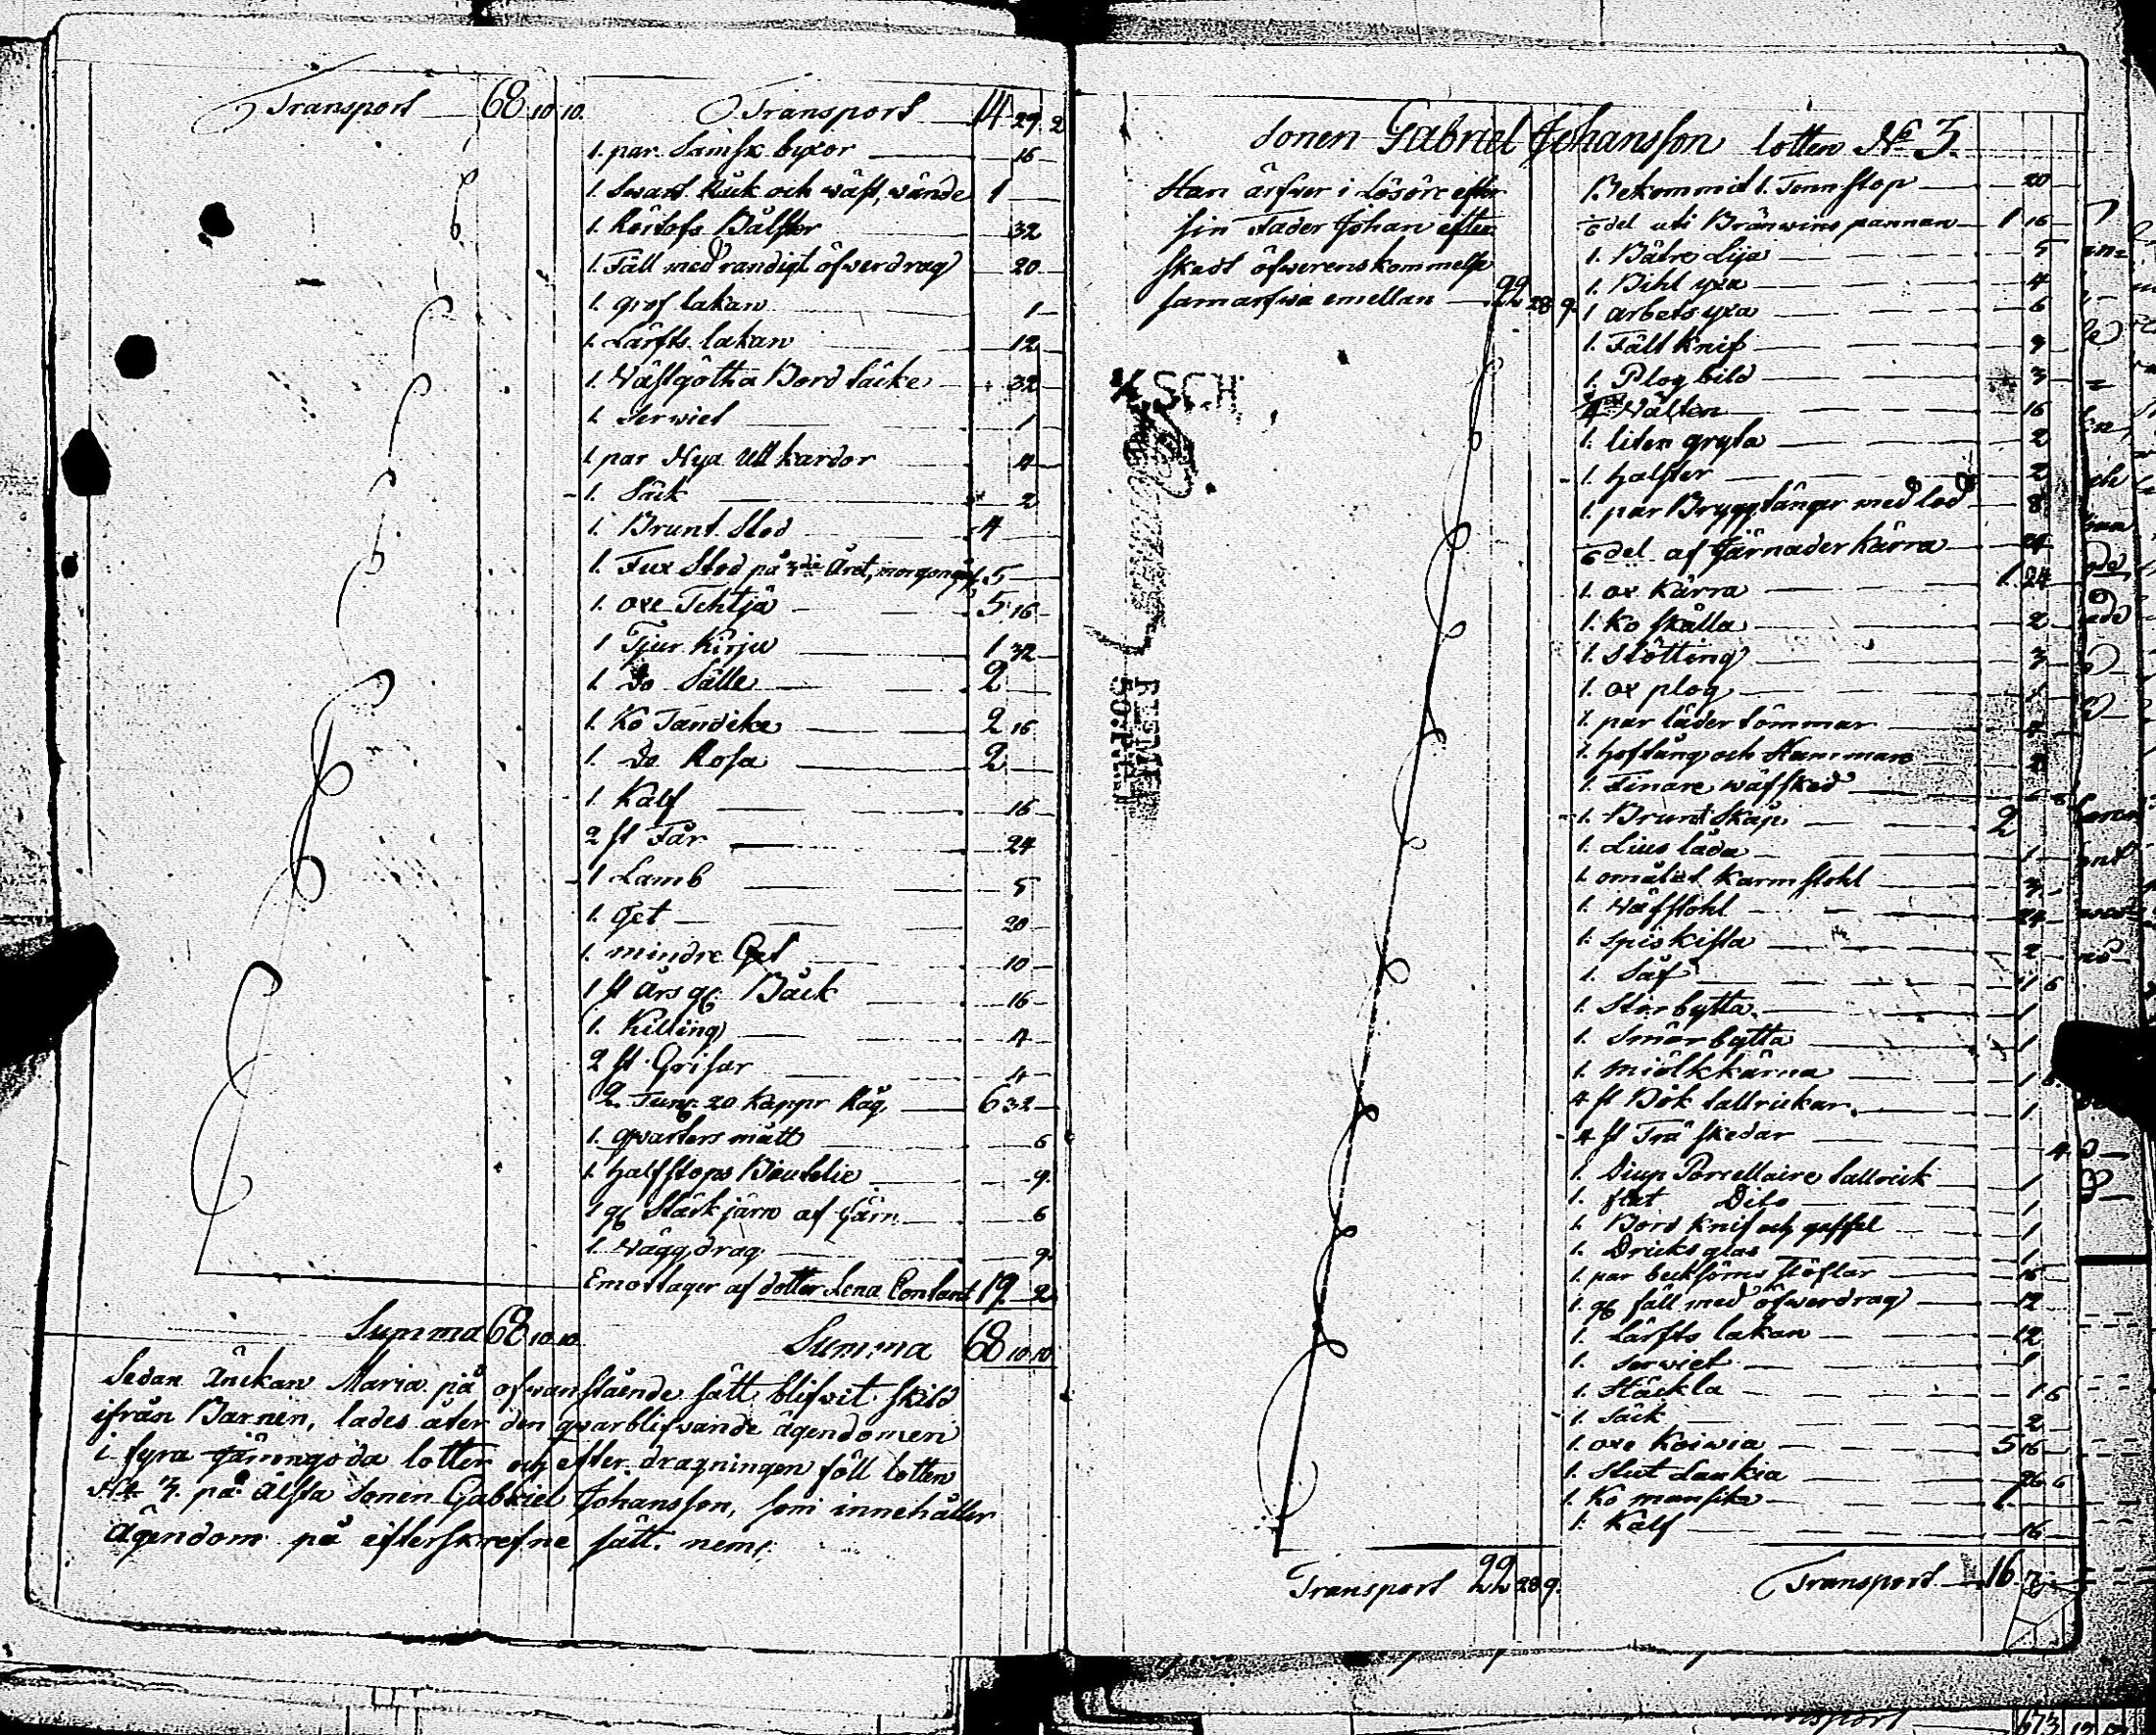 Transport 68. 10. 10.
Transport 14. 29. 2
1. par Sämsk byxor 16
1. Svart Råck och wäst, wände 1
1. Bålster 32
1. Fäll med randigt öfwerdrag 20
1. grof lakan 1
1. Lärfts lakan 12
1. Wästgötha Bord täcke 32
1. Serwiet 1
1. par Nya Ull kardor 4
1. Säck 2
1. Brunt Stod 4
1. Fux Stod på 3die Året, morgongåf. 5
1. oxe Tehtjä 5. 16
1 Tjur Kirju 1 32
1. Do Sälle 2
1. Ko Tandika 2 16
1. Do Rosa 2
1. Kalf 16
2 st Får 24
1 Lamb 5
1. Get 20
1. mindre Get 10
1 st Års gl. Båck 16
1. Killing 4
2 st. Grisar 4
2. Tunn. 20 Kappr Råg 6 32
1. qwarters mått 6
1. halfstops Boutelie 9.
1 gl Stärk järn af Järn 6
1. Wägg drag 9.
Emottager af dotter Lena Contant 19. 2
Summa 68 10. 10.
Summa 68 10. 10
Sedan Änckan Maria på ofwanstående sätt blifwit skild
ifrån Barnen, lades åter den qwarblifwande ägendomen
i fyra lotter och efter dragningen föll lotten
No 3. på Älsta Sonen Gabriel Johansson, som innehåller
Ägendom på efterskrefne sätt. neml.
Sonen Gabriel Johansson lotten No 3.
Han ärfwer i Lösöre efter
sin Fader Johan efter
skedt öfwerenskommelse
samarfwa emellan 22 28 9.
Bekommit 1. Tenn stop 20
1/6 del uti Bränwins pannan 1 16
1. Bätre Lija 5
1. Bihl yxa 4
1 arbets yxa 6
1. Fäll Knif 9
1. Plog bild 3
Wälten 16
1. liten gryta 2
1. halster 2
1. par Bryggtänger med lod 8
1/6 del af Järnader Kärra 24
1. ox Kärra 1. 24
1. Ko skälla 2
1. Stötting 3
1. ox plog 1
1. par läder tömmar
1. hoftång och Hammare
1. Finare wäfsked 6
1. Brunt Skåp 2
1. Lius låda 1
1. omålat Karmstohl 3
1. Wäfstohl 24
1. spis kista 2
1. Såf 1 6
1. Stör bytta 1
1. Smör bytta 1
1. miölkkärna 1
4 st Bök tallrickar 1
4 st Trä skedar 4
1. Diup Porcellaire tallrick 1
1. flat Dito 1
1. Bord Knif och gaffel 1
1. Dricks glas 1
1. par becksöms stöflar 16
1. gl fäll med öfwerdrag 12
1. Lärfts lakan 12
1. Serwiet 1
1. Häckla 1 6
1. Säck 2
1. oxe Koiwia 5 16
1. Stut Laukia 26 6
1. Ko mansika
1. Kalf 16
Transport 22 28 9.
Transport 16